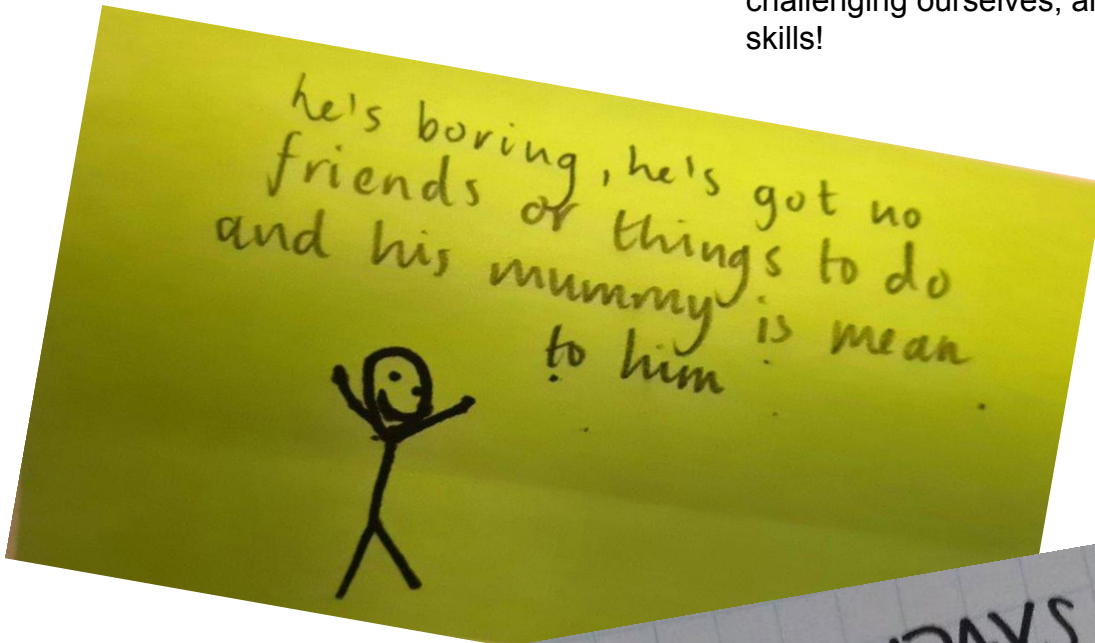 challenging ourselves, a
skills!
he's boring, he's got no
friends or things to do
and his mummy is mean
to him
DAYS